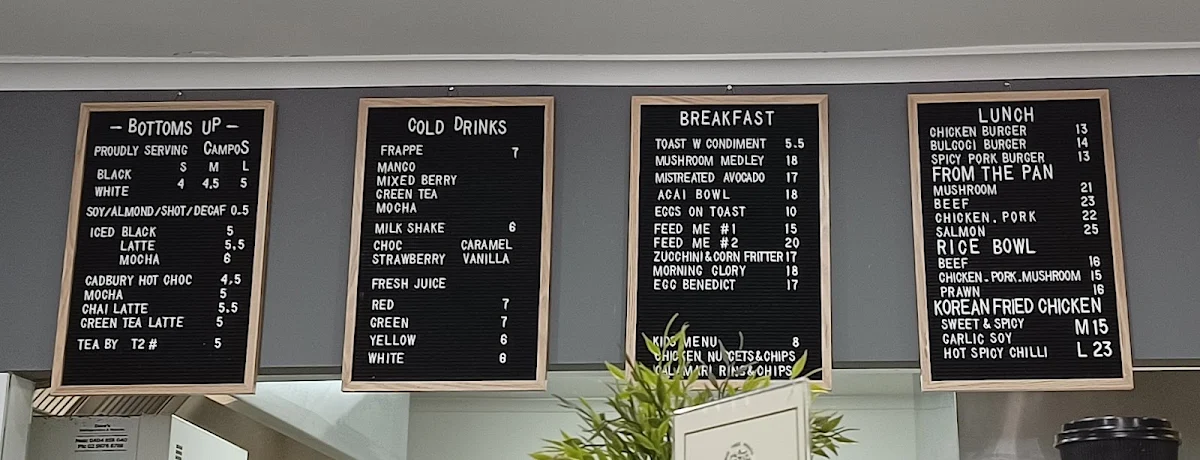 — BOTTOMS UP —
PROUDLY SERVING CAMPOS
S M L
BLACK
WHITE 4 4.5 5
SOY/ALMOND/SHOT/DECAF 0.5
ICED BLACK 5
LATTE 5.5
MOCHA 6
CADBURY HOT CHOC 4.5
MOCHA 5
CHAI LATTE 5.5
GREEN TEA LATTE 5
TEA BY T2 # 5
COLD DRINKS
FRAPPE 7
MANGO
MIXED BERRY
GREEN TEA
MOCHA
MILK SHAKE 6
CHOC CARAMEL
STRAWBERRY VANILLA
FRESH JUICE
RED 7
GREEN 7
YELLOW 6
WHITE 8
BREAKFAST
TOAST W CONDIMENT 5.5
MUSHROOM MEDLEY 18
MISTREATED AVOCADO 17
ACAI BOWL 18
EGGS ON TOAST 10
FEED ME #1 15
FEED ME #2 20
ZUCCHINI & CORN FRITTER 17
MORNING GLORY 18
EGG BENEDICT 17
KIDS MENU 8
CHICKEN NUGGETS & CHIPS
CALAMARI RING & CHIPS
LUNCH
CHICKEN BURGER 13
BULGOGI BURGER 14
SPICY PORK BURGER 13
FROM THE PAN
MUSHROOM 21
BEEF 23
CHICKEN . PORK 22
SALMON 25
RICE BOWL
BEEF 16
CHICKEN . PORK . MUSHROOM 15
PRAWN 16
KOREAN FRIED CHICKEN
SWEET & SPICY M 15
GARLIC SOY
HOT SPICY CHILLI L 23